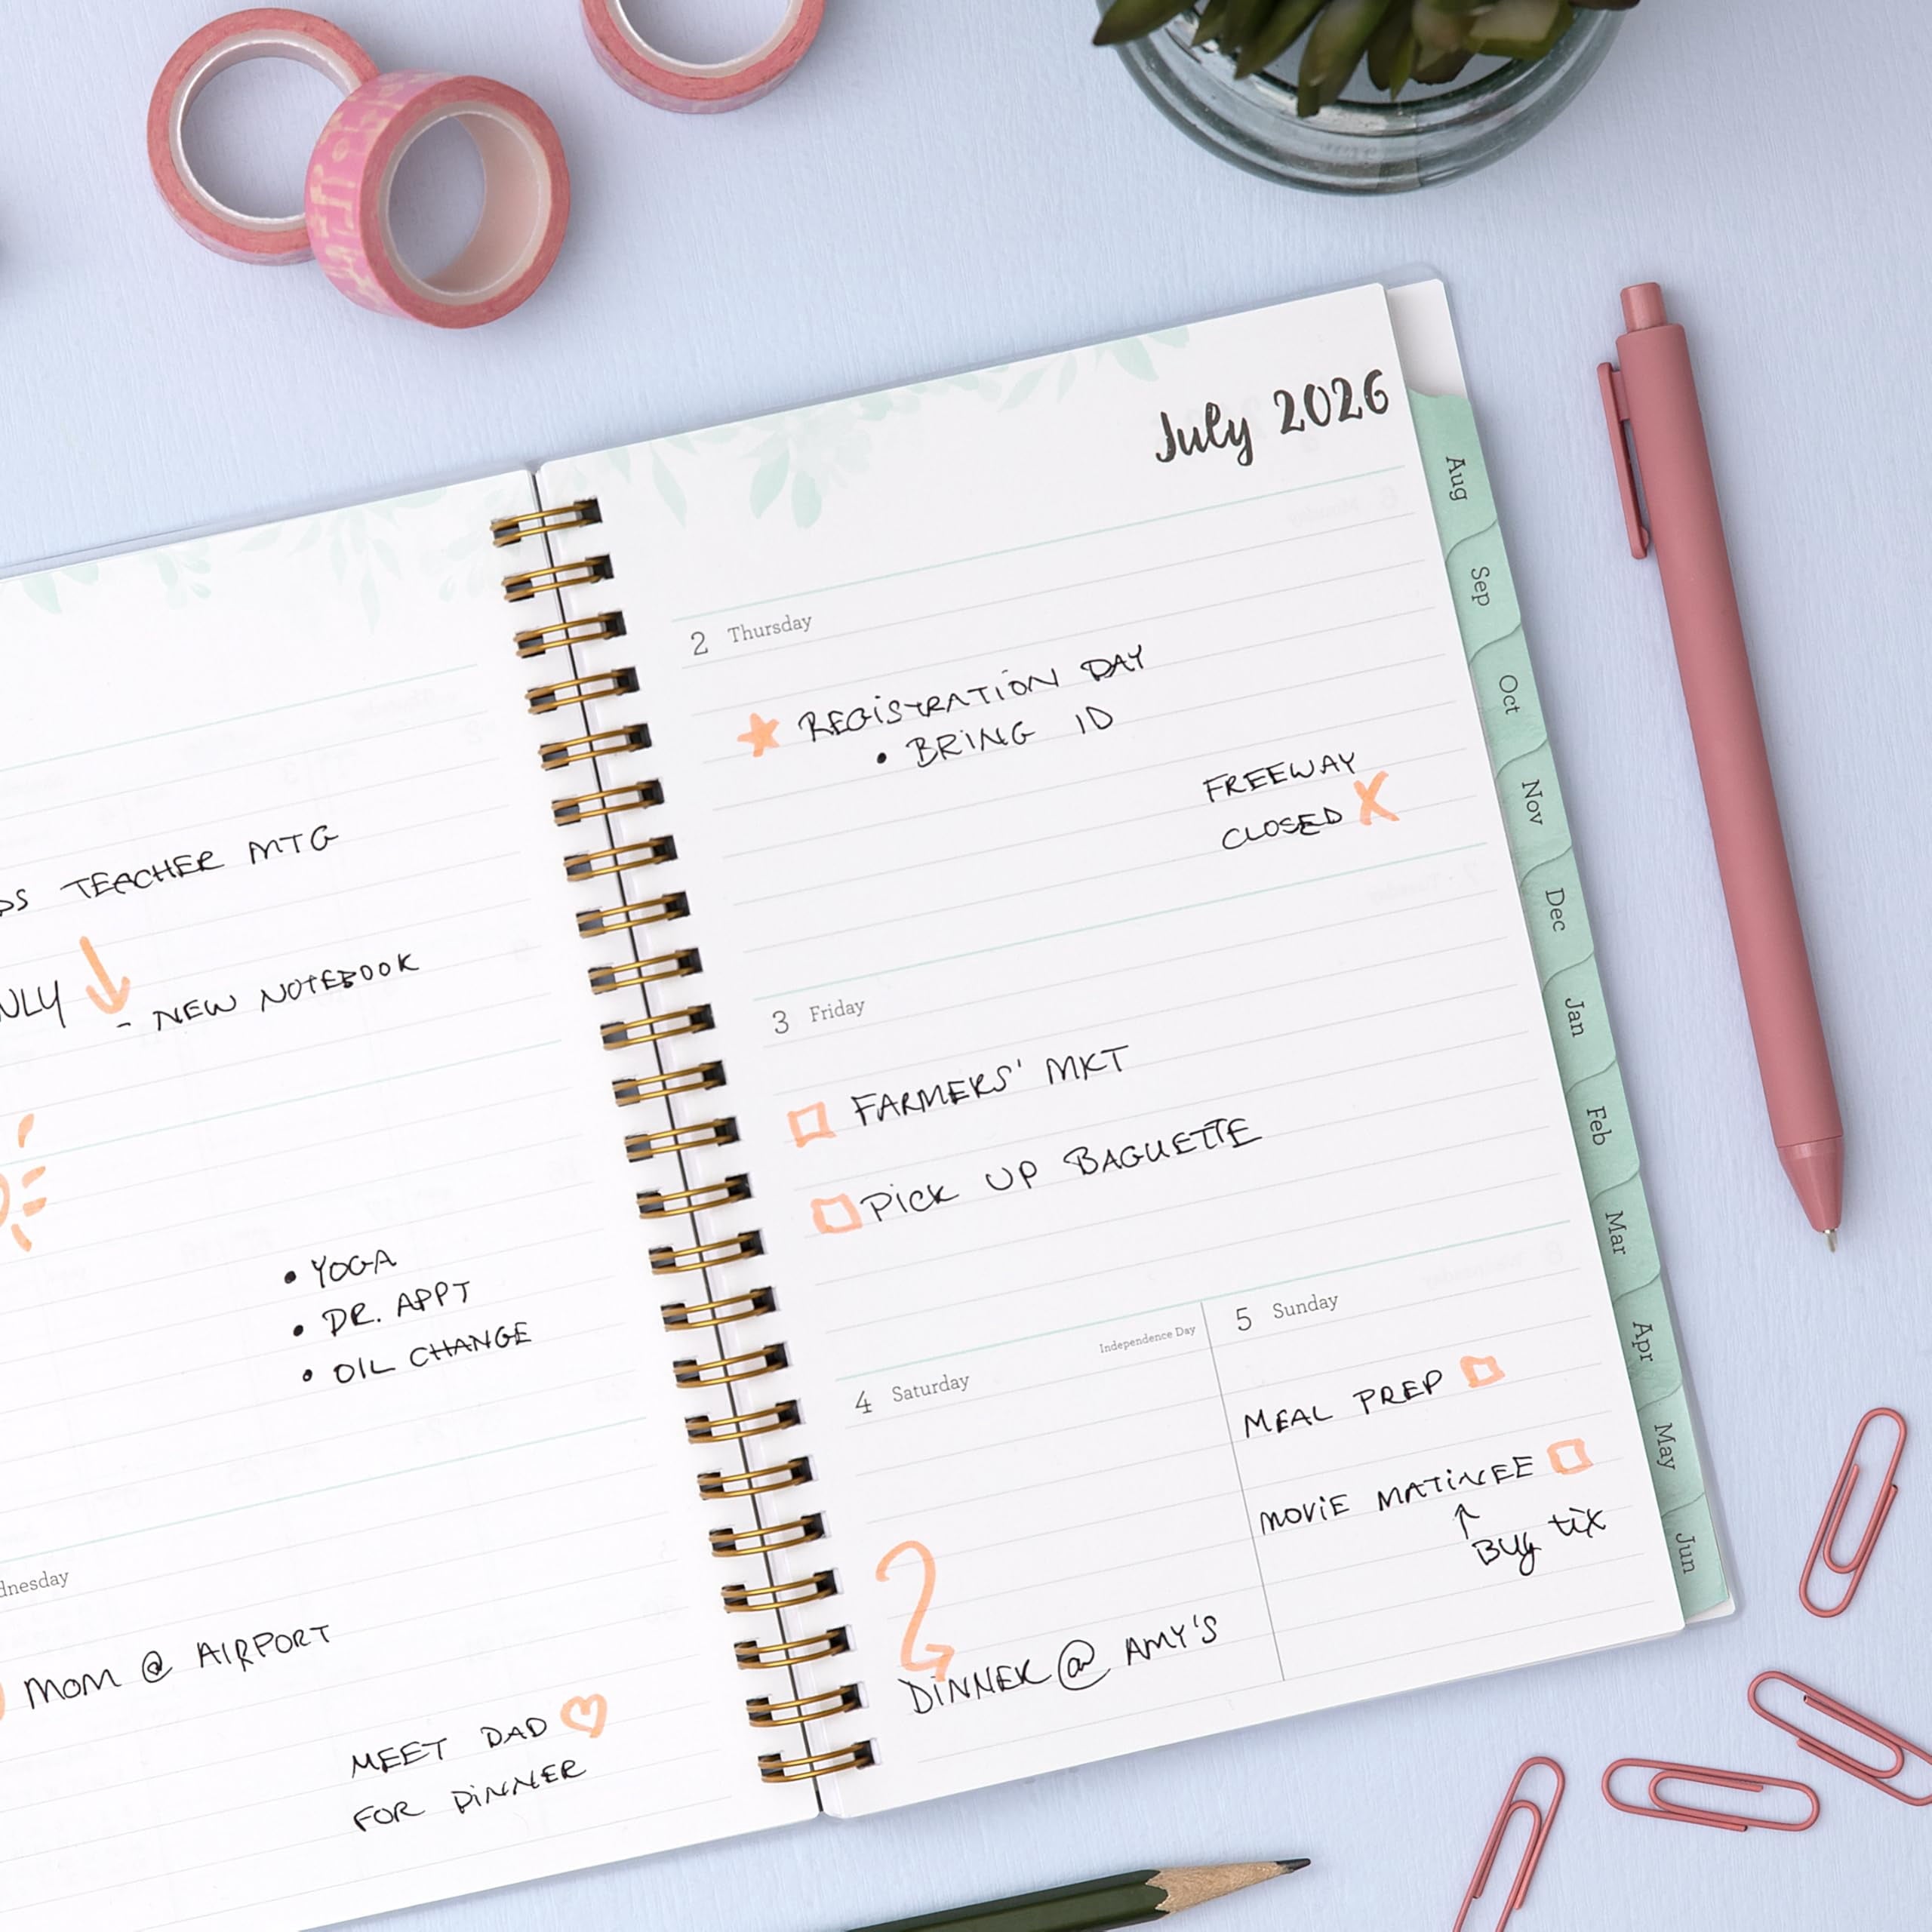 TEACHER MTG
- NEW NOTEBOOK
• YOGA
• DR. APPT
• OIL CHANGE
MOM @ AIRPORT
MEET DAD
FOR DINNER
July 2026
2 Thursday
REGISTRATION DAY
• BRING ID
FREEWAY
CLOSED X
3 Friday
FARMERS' MKT
PICK UP BAGUETTE
Independence Day
4 Saturday
DINNER @ AMY'S
5 Sunday
MEAL PREP
MOVIE MATINEE
BUY tix
Aug
Sep
Oct
Nov
Dec
Jan
Feb
Mar
Apr
May
Jun